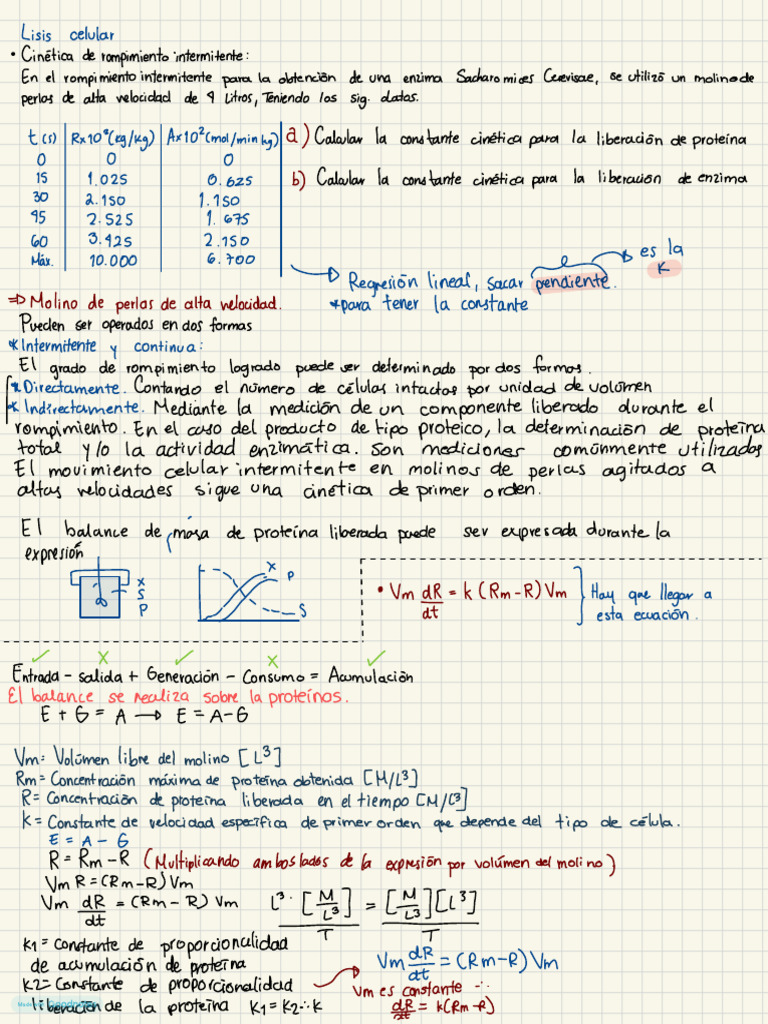 Lisis celular
• Cinética de rompimiento intermitente:
En el rompimiento intermitente para la obtención de una enzima Sacharomices Cerevisae, se utilizó un molino de
perlas de alta velocidad de 4 litros, Teniendo los sig. datos.
t (s) R×10² (kg/kg) A×10² (mol/min kg)
0 0 0
15 1.025 0.625
30 2.150 1.150
45 2.525 1.675
60 3.425 2.150
Máx. 10.000 6.700
a) Calcular la constante cinética para la liberación de proteína
b) Calcular la constante cinética para la liberación de enzima
Regresión lineal, sacar pendiente. es la K
*para tener la constante
⇒ Molino de perlas de alta velocidad.
Pueden ser operados en dos formas
* Intermitente y continua:
El grado de rompimiento logrado puede ser determinado por dos formas.
* Directamente. Contando el número de células intactas por unidad de volúmen
* Indirectamente. Mediante la medición de un componente liberado durante el
rompimiento. En el caso del producto de tipo proteico, la determinación de proteína
total y/o la actividad enzimática. Son mediciones comúnmente utilizados
El movimiento celular intermitente en molinos de perlas agitados a
altas velocidades sigue una cinética de primer orden.
El balance de masa de proteína liberada puede ser expresada durante la
expresión
X
S
P
X
P
S
• Vm dR/dt = k (Rm-R) Vm
Hay que llegar a
esta ecuación.
✓ X ✓ X ✓
Entrada - salida + Generación - Consumo = Acumulación
El balance se realiza sobre la proteínas.
E + G = A → E = A-G
Vm: Volúmen libre del molino [L³]
Rm = Concentración máxima de proteína obtenida [M/L³]
R = Concentración de proteína liberada en el tiempo [M/L³]
K = Constante de velocidad específica de primer orden que depende del tipo de célula.
E = A - G
R = Rm - R (Multiplicando ambos lados de la expresión por volúmen del molino)
Vm R = (Rm-R) Vm
Vm dR/dt = (Rm - R) Vm
L³·[M/L³]/T = [M/L³][L³]/T
K1 = constante de proporcionalidad
de acumulación de proteína
K2 = Constante de proporcionalidad
liberación de la proteína K1 = K2 ∴ K
Vm dR/dt = (Rm-R) Vm
Vm es constante ∴
dR/dt = k(Rm-R)